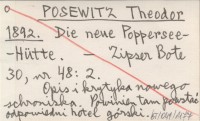 POSEWITZ Theodor
1892. Die neue Poppersee-
-Hütte. — Zipser Bote
30, nr 48: 2.
Opis i krytyka nowego
schroniska. Powinien tam powstać
odpowiedni hotel górski.